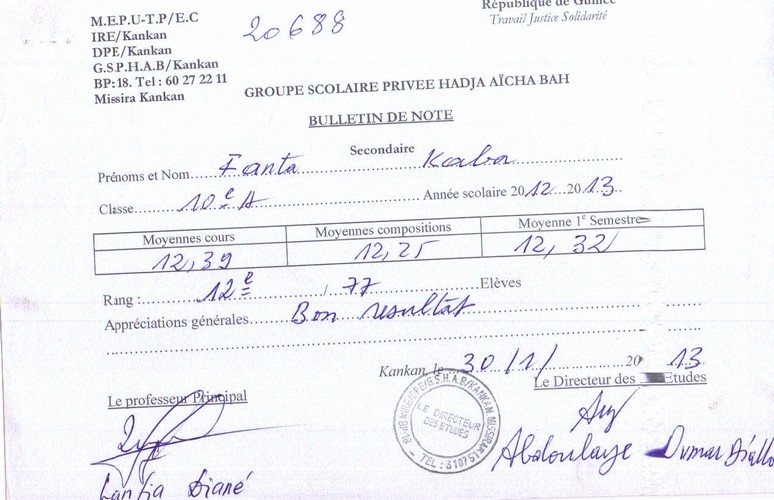 République de Guinée
Travail Justice Solidarité
M.E.P.U-T.P/E.C
IRE/Kankan
DPE/Kankan
G.S.P.H.A.B/Kankan
BP:18. Tel : 60 27 22 11
Missira Kankan
20688
GROUPE SCOLAIRE PRIVEE HADJA AÏCHA BAH
BULLETIN DE NOTE
Secondaire
Prénoms et Nom Fanta Kaba
Classe 10e A Année scolaire 2012 2013
Moyennes cours Moyennes compositions Moyenne 1e Semestre
12,39 12,25 12,32
Rang : 12e / 77 Elèves
Appréciations générales Bon resultat
Kankan, le 30/1/ 2013
Le professeur Principal Le Directeur des Etudes
LE DIRECTEUR
DES ETUDES
Abdoulaye Oumar Diallo
Diané